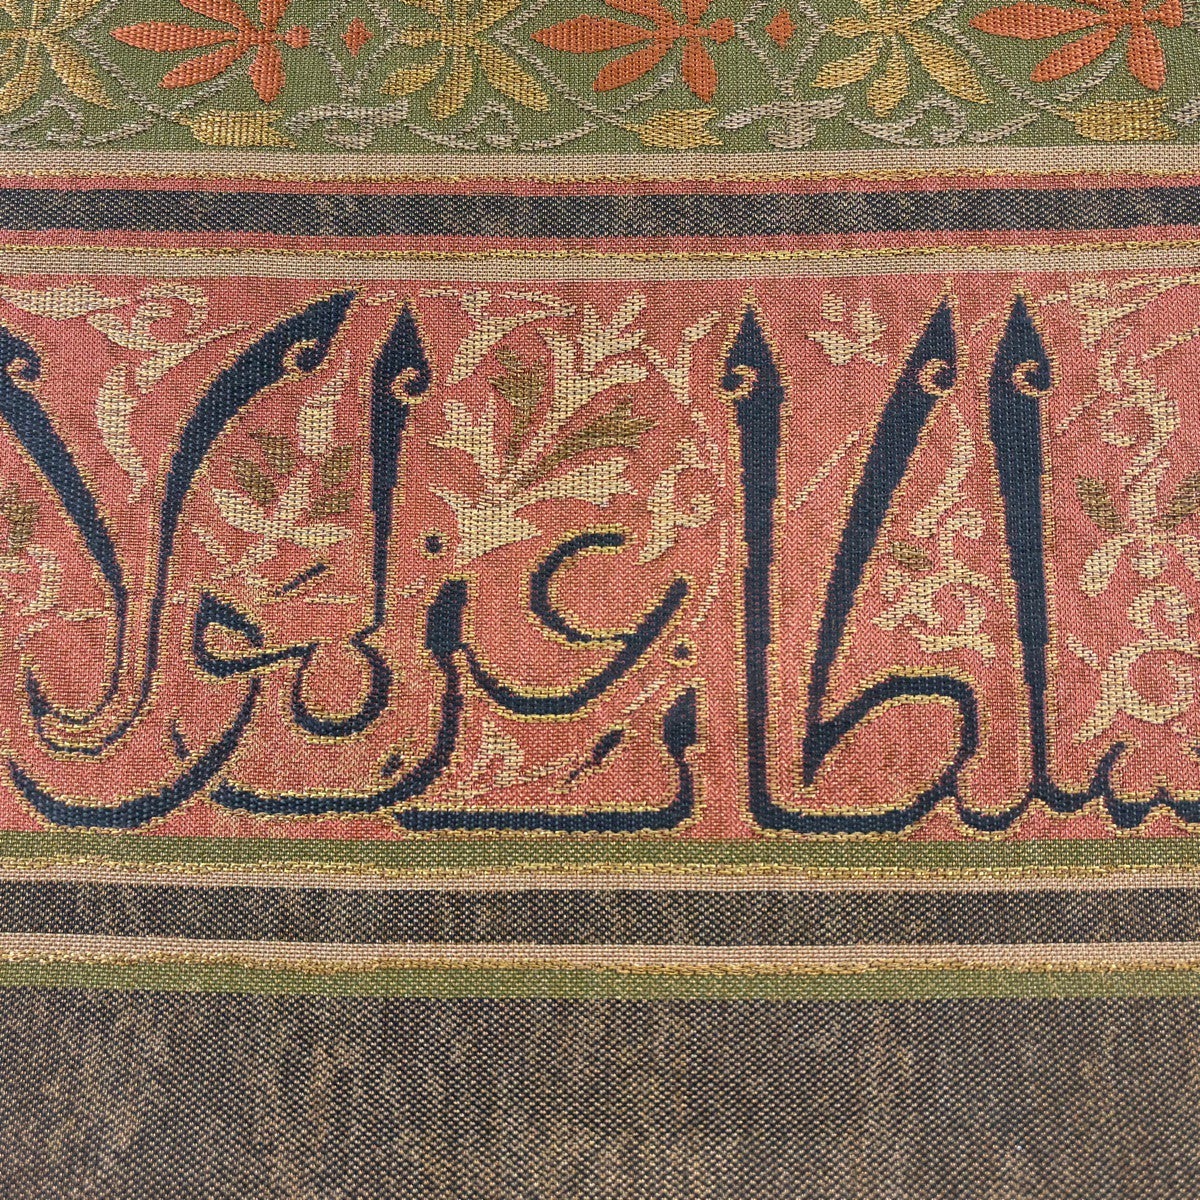 سلطان عز لمولا